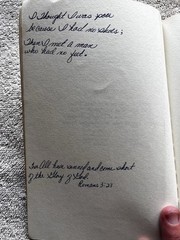 I Thought I was poor
because I had no shoes;
Then I met a man
who had no feet.
For All have sinned and come short
of the Glory of God.
Romans 3:23